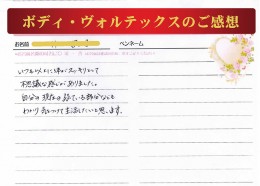 ボディ・ヴォルテックスのご感想
お名前
ペンネーム
いつも以上に体がスッキリして
不思議な感じがありました。
自分の現在の疲ている部分なども
わかり気をつけて生活したいと思います。